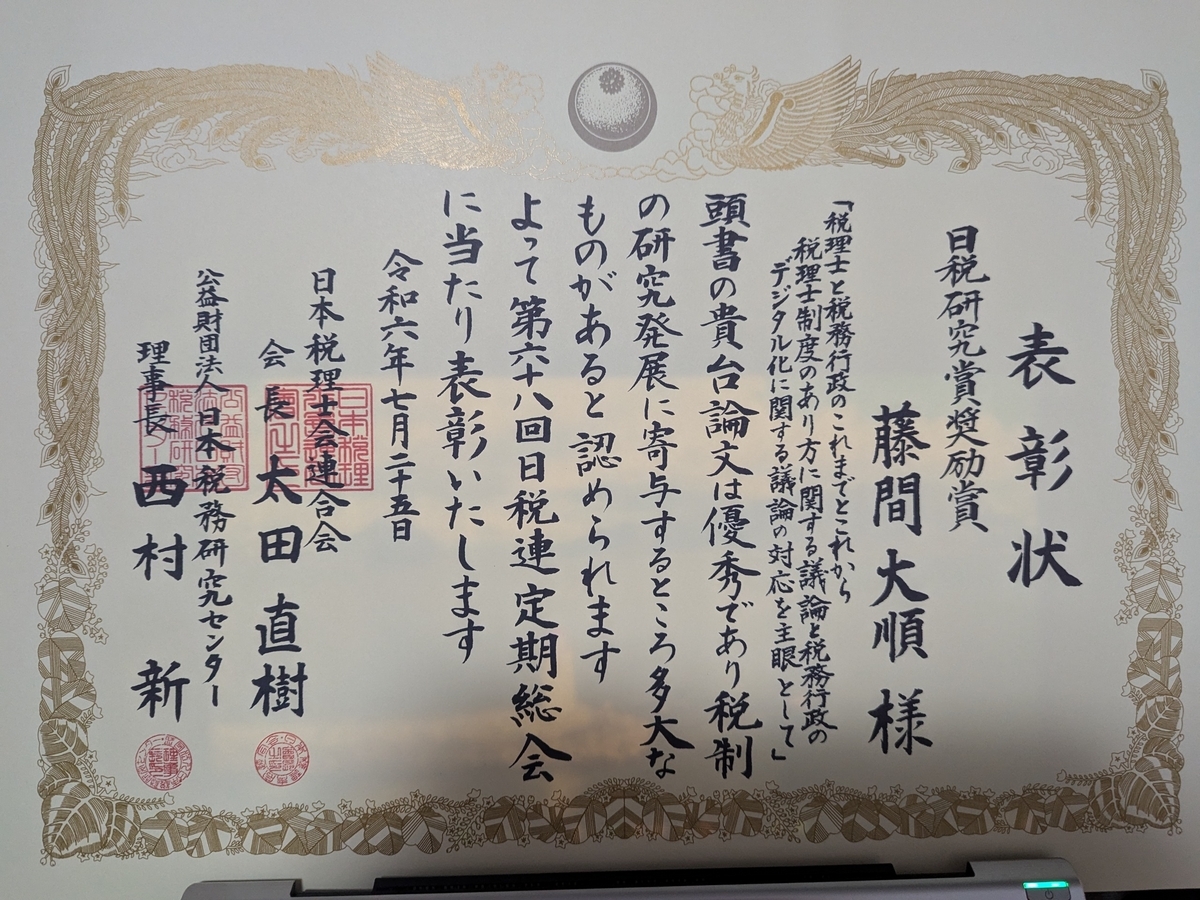 表彰状
日税研究賞奨励賞
藤間大順様
「税理士と税務行政のこれまでとこれから
税理士制度のあり方に関する議論と税務行政の
デジタル化に関する議論の対応を主眼として」
頭書の貴台論文は優秀であり税制
の研究発展に寄与するところ多大な
ものがあると認められます
よって第六十八回日税連定期総会
に当たり表彰いたします
令和六年七月二十五日
日本税理士会連合会
会長 太田直樹
公益財団法人日本税務研究センター
理事長 西村新